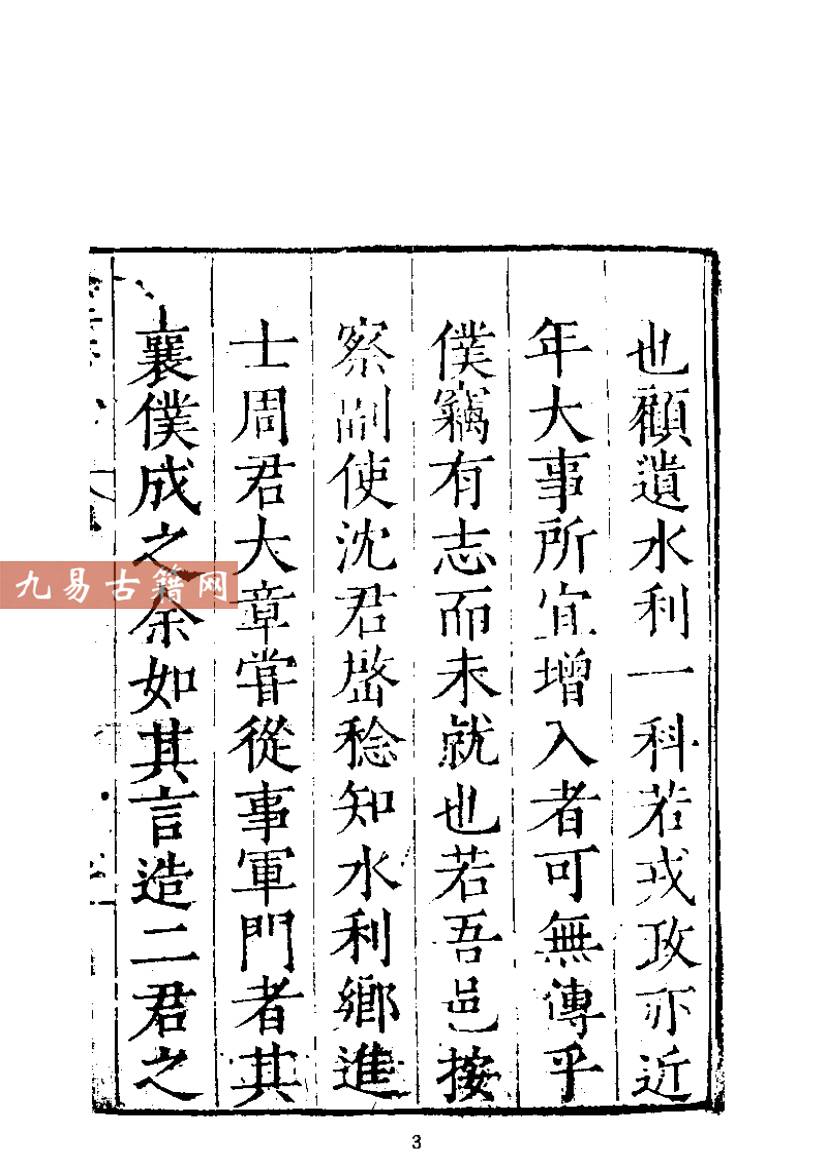 也顧遺水利一科若戎政亦近
年大事所宜增入者可無傳乎
僕竊有志而未就也若吾邑按
察副使沈君𡹘稔知水利鄉進
士周君大章嘗從事軍門者其
襄僕成之余如其言造二君之
九易古籍网
3